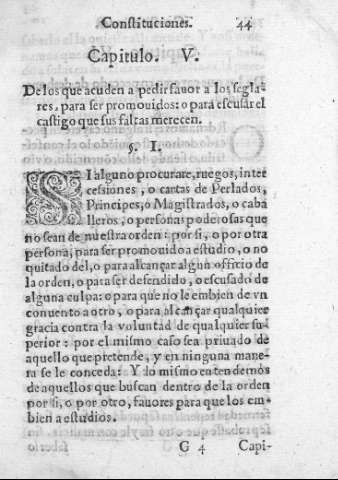 Constituciones. 44
Capitulo. V.
De los que acuden a pedir fauor a los segla-
res, para ser promouidos: o para escusar el
castigo que sus faltas merecen.
§. I.
SI alguno procurare, ruegos, inter
cessiones, o cartas de Perlados,
Principes, o Magistrados, o caba
lleros, o personas poderosas que
no sean de nuestra orden: por si, o por otra
persona, para ser promouido a estudio, o no
quitado del, o para alcançar algun officio de
la orden, o para ser defendido, o escusado de
alguna culpa: o para que no le embien de vn
conuento a otro, o para alcançar qualquier
gracia contra la voluntad de qualquier su-
perior: por el mismo caso sea priuado de
aquello que pretende, y en ninguna mane-
ra se le conceda: Y lo mismo entendemos
de aquellos que buscan dentro de la orden
por si, o por otro, fauores para que los em-
bien a estudios.
G 4 Capi-